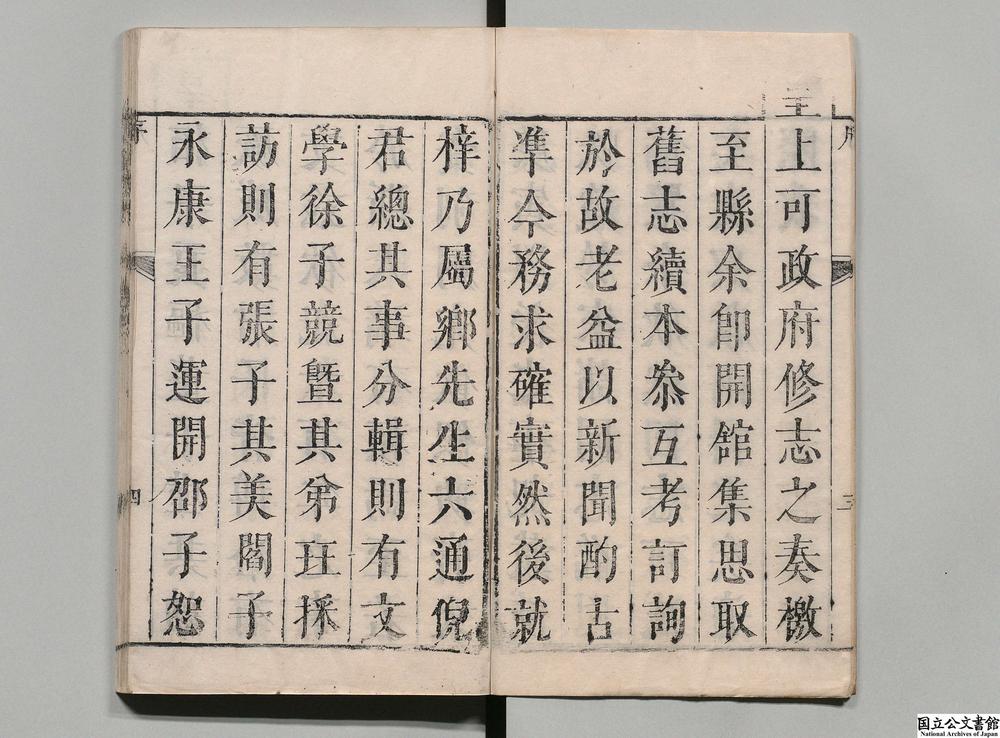 上可政府修志之奏檄
至縣余卽開舘集思取
舊志續本叅互考訂詢
於故老益以新聞酌古
凖今務求確實然後就
梓乃屬鄉先生六通倪
君總其事分輯則有文
學徐子競暨其弟㺵採
訪則有張子其美閻子
永康王子運開邵子恕
序
三
序
四
国立公文書館
National Archives of Japan